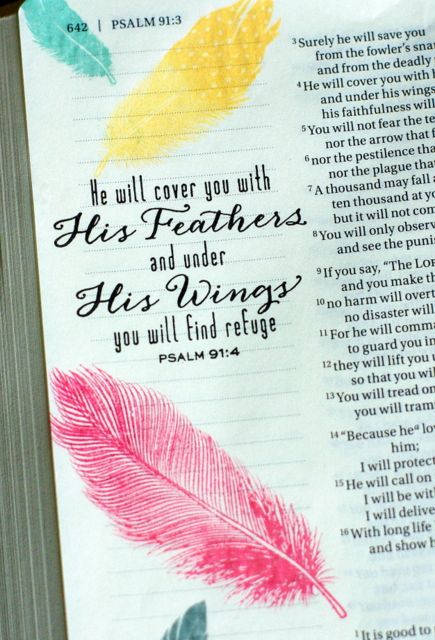 642 | PSALM 91:3
He will cover you with
His Feathers
and under
His Wings
you will find refuge
PSALM 91:4
3 Surely he will save you
from the fowler's
and from the deadly
4 He will cover you with
and under his wings
his faithfulness will
5 You will not fear the
nor the arrow that
6 nor the pestilence that
nor the plague that
7 A thousand may fall
ten thousand at
but it will not
8 You will only
and see the
9 If you say, "The LORD
and you make
10 no harm will
no disaster will
11 For he will
to guard you in
12 they will lift you
so that you
13 You will tread on
you will
14 "Because he a
him;
I will
15 He will call on
I will be
I will
16 With long life
and show
1 It is good to